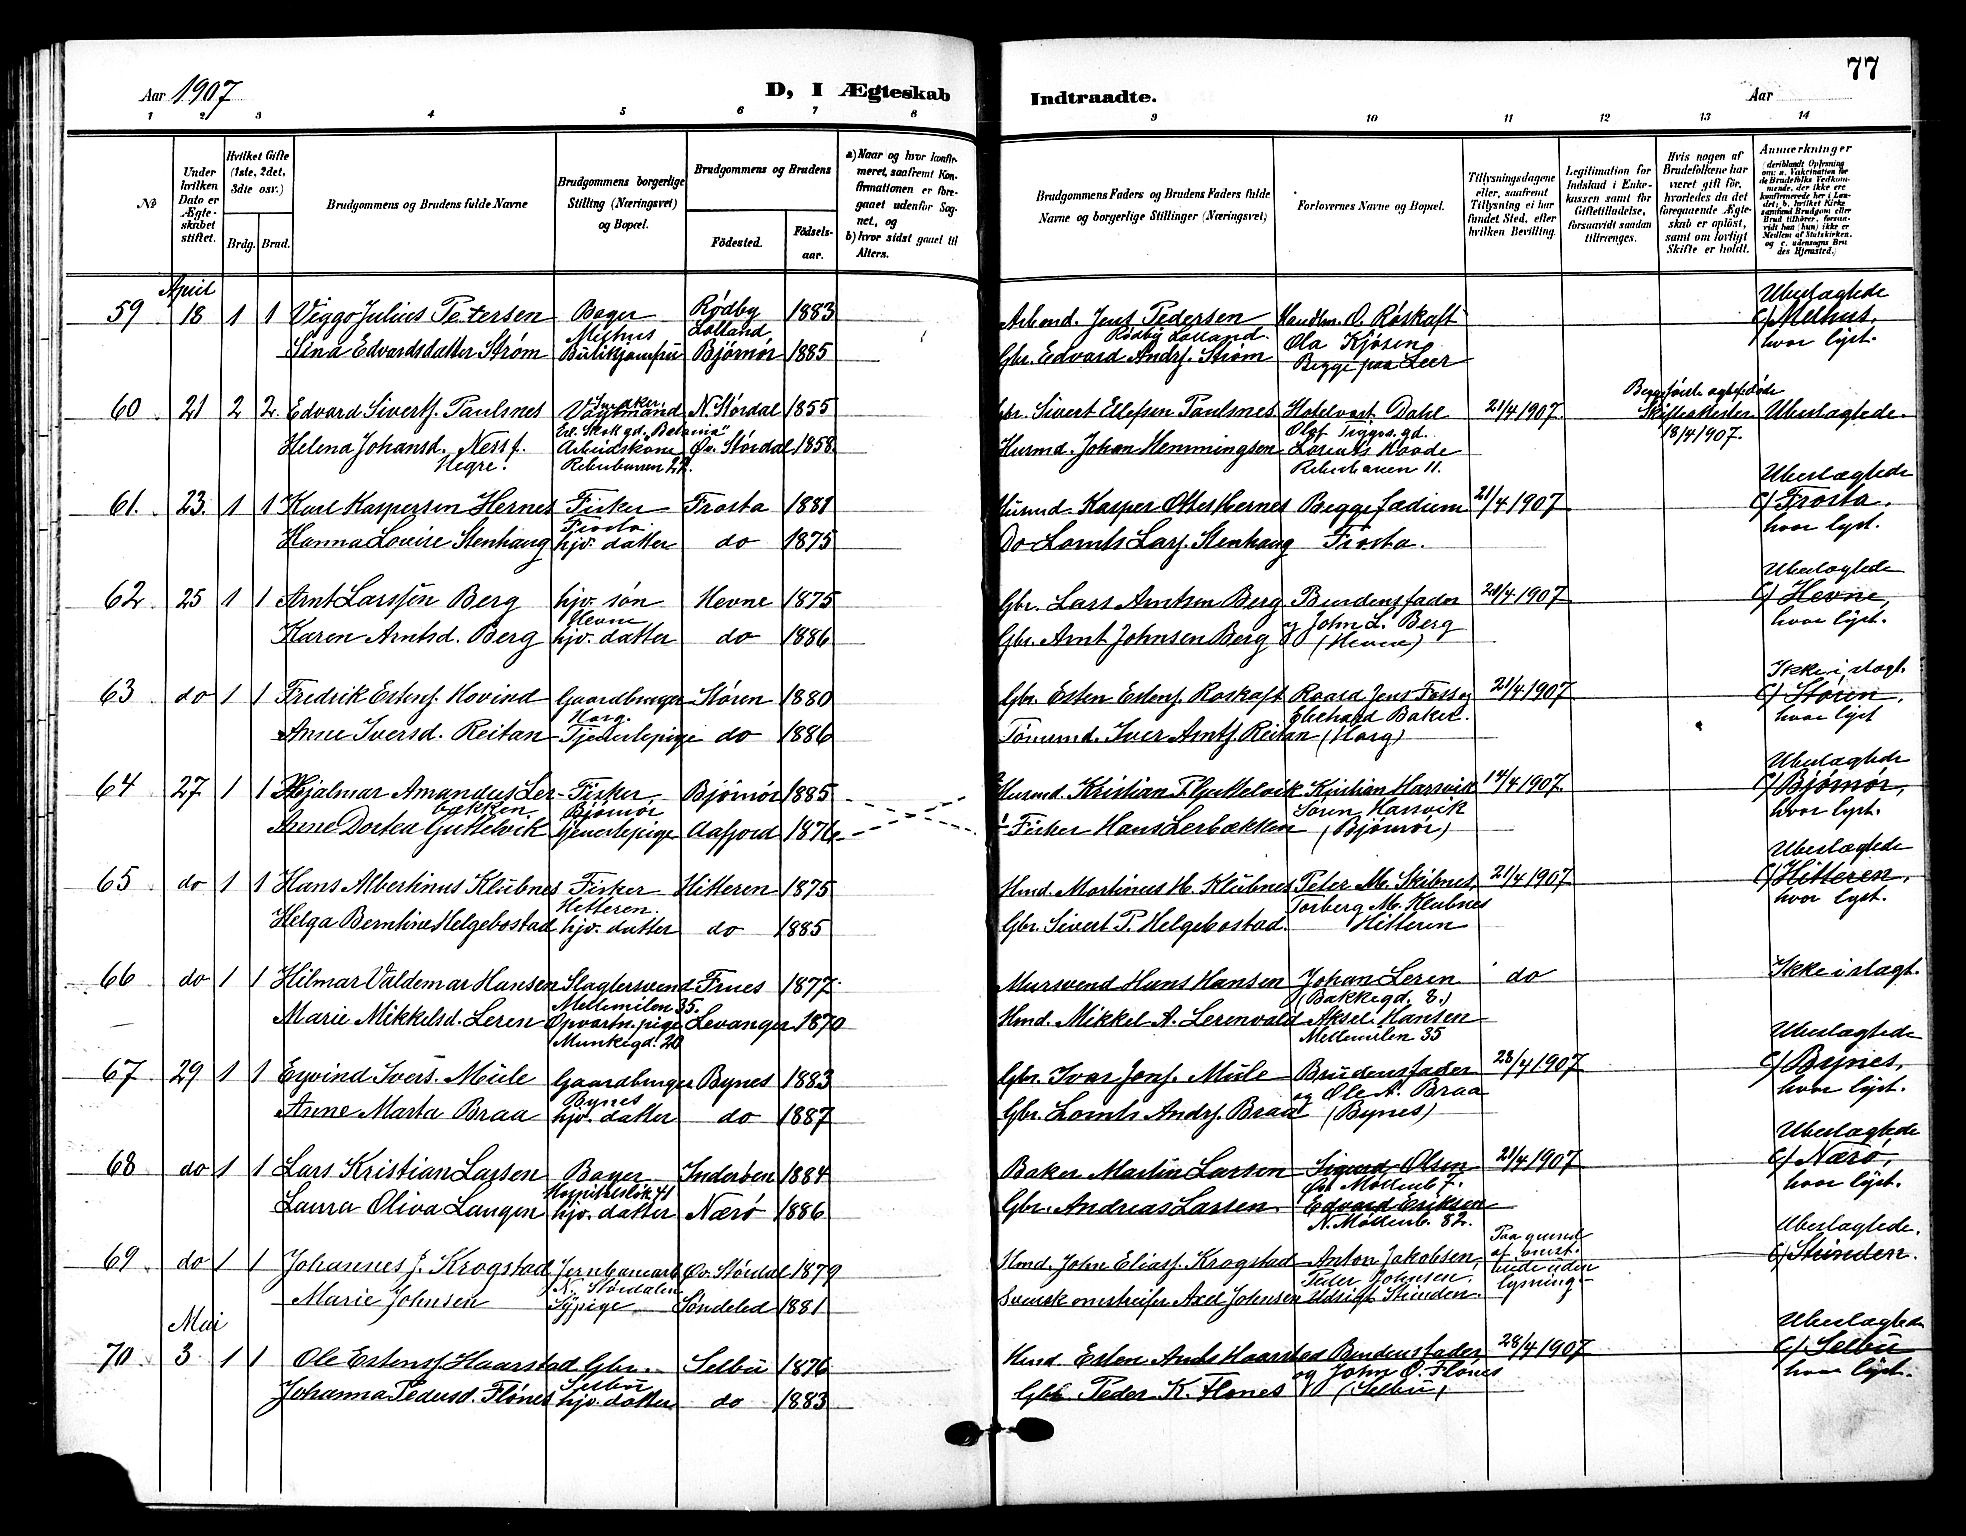 77
Aar 1907
D, I Ægteskab Indtraadte.
Aar
1 2 3 4 5 6 7 8 9 10 11 12 13 14
No
Under hvilken Dato er Ægteskabet stiftet.
Hvilket Gifte (1ste, 2det, 3die osv.)
Brdg. Brud.
Brudgommens og Brudens fulde Navne
Brudgommens borgerlige Stilling (Næringsvei) og Bopæl.
Brudgommens og Brudens
Fødested.
Fødselsaar.
a) Naar og hvor konfirmeret, saafremt Konfirmationen er foregaaet udenfor Sognet, og
b) hvor sidst gaaet til Alters.
Brudgommens Faders og Brudens Faders fulde Navne og borgerlige Stillinger (Næringsvei)
Forlovernes Navne og Bopæl.
Tillysningsdagene eller, saafremt Tillysning ei har fundet Sted, efter hvilken Bevilling.
Legitimation for Indskud i Enkekassen samt for Giftetilladelse, forsaavidt saadan tiltrænges.
Hvis nogen af Brudefolkene har været gift før, hvorledes da det foregaaende Ægteskab er opløst, samt om lovligt Skifte er holdt.
Anmerkninger
April
59 18 1 1 Viggo Julius Petersen Bager Rødby 1883 Arbmd. Jens Pedersen Handlm. O. Røskaft Ubeslægtede
Melhus Lolland Rødby Lolland. Ola Kjøsen c/ Melhus,
Sina Edvardsdatter Strøm Butikjomfru Bjørnør 1885 Gbr. Edvard Andrs. Strøm Begge paa Leer hvor lyst.
60 21 2 2. Edvard Siverts. Paulsnes Vagtmand N. Størdal 1855 Gbr. Sivert Ellefsen Paulsnes Hotelvært Dahl 21/4 1907 Skifteattester Ubeslægtede.
Olaf Trygvs. gd. 18/4 1907.
Helena Johansd. Ness f. Arbeidskone Øv. Størdal 1858. Husmd. Johan Hemmingsen Lorents Kaade
Hegre. Reberbanen 22. Reberbanen 11.
61. 23. 1 1 Karl Kaspersen Hernes Fisker Frosta 1881 Husmd. Kasper Ottes. Hernes Begge fædrene 21/4 1907 Ubeslægtede
Frosta c/ Frosta,
Hanna Lovise Stenhaug hjv. datter do 1875 Do Lornts Lars. Stenhaug Frosta. hvor lyst.
62. 25 1 1 Arnt Larssøn Berg hjv. søn Hevne 1875 Gbr. Lars Arntsen Berg Brudens fader 21/4 1907 Ubeslægtede
Hevne og John L. Berg c/ Hevne,
Karen Arntsd. Berg hjv. datter do 1886 Gbr. Arnt Johnsen Berg (Hevne) hvor lyst.
63 do 1 1 Fredrik Estens. Hovind Gaardbruger Støren 1880 Gbr. Esten Estens. Roskaft Roard Jens Foss og 21/4 1907 Ikke i slægt.
Horg. Eberhard Baker. c/ Støren,
Anne Iversd. Reitan Tjenestepige do 1886 Tømmd. Iver Arnts. Reitan (Horg) hvor lyst
64 27 1 1 Hjalmar Amandus Lerbækken. Fisker Bjørnør 1885 2 Husmd. Kristian Kristian Harsvik 14/4 1907. Ubeslægtede
Bjørnør Søren Harsvik c/ Bjørnør,
Anne Dortea Tjenestepige Aafjord 1876 1 Fisker Hans Lerbækken (Bjørnør) hvor lyst.
65 do 1 1 Hans Albertinus Klubnes Fisker Hitteren 1875 Hmd. Martinus H. Klubnes Peter M. Skibnes, 21/4 1907 Ubeslægtede
Hitteren. Torberg M. Klubnes c/ Hitteren,
Helga Berntine Helgebostad hjv. datter do 1885 Gbr. Sivert P. Helgebostad. Hitteren hvor lyst.
66 do 1 1 Hilmar Valdemar Hansen Slagtersvend 1877 Mursvend Hans Hansen Johan Leren do Ikke i slægt.
Mellemilen 35. (Bakkegd. 2.)
Marie Mikkelsd. Leren Opvartn. pige Levanger 1870 Hmd. Mikkel A. Lerenvald Aksel Hansen
Munkegd. 20 Mellemilen 35
67 29 1 1 Eyvind Ivers. Mule Gaardbruger Bynes 1883 Gbr. Ivar Jons. Mule Brudens fader 28/4 1907 Ubeslægtede
Bynes og Ole A. Braa c/ Bynes,
Anne Marta Braa hjv. datter do 1887 Gbr. Lornts Andrs. Braa (Bynes) hvor lyst.
68 do 1 1 Lars Kristian Larsen Bager Inderøen 1884 Baker Martin Larsen Sigurd Olsen 21/4 1907 Ubeslægtede
Øv. Møllenb. 7. c/ Nærø,
Laura Oliva Langen hjv. datter Nærø 1886 Gbr. Andreas Larsen. Edvard Eriksen hvor lyst.
N. Møllenb. 82.
69 do 1 1 Johannes J. Krogstad Jernbanearb. Øv. Størdal 1879 Hmd. John Elias. Krogstad Anton Jakobsen, Paa grund af omst. uden lysning Ubeslægtede.
N. Størdalen Peder Johnsen. c/ Strinden.
Marie Johnsen Sypige Søndeled 1881 Svensk omstreifer Axel Johnsen Strinden.
Mai
70 3 1 1 Ole Estens. Haarstad Gbr. Selbu 1876 Hmd. Esten Arnts Haarstad Brudens fader 28/4 1907 Ubeslægtede
Selbu og John O. Flønes c/ Selbu
Johanna Pedersd. Flønes hjv. datter do 1883 Gbr. Peder K. Flønes (Selbu) hvor lyst.